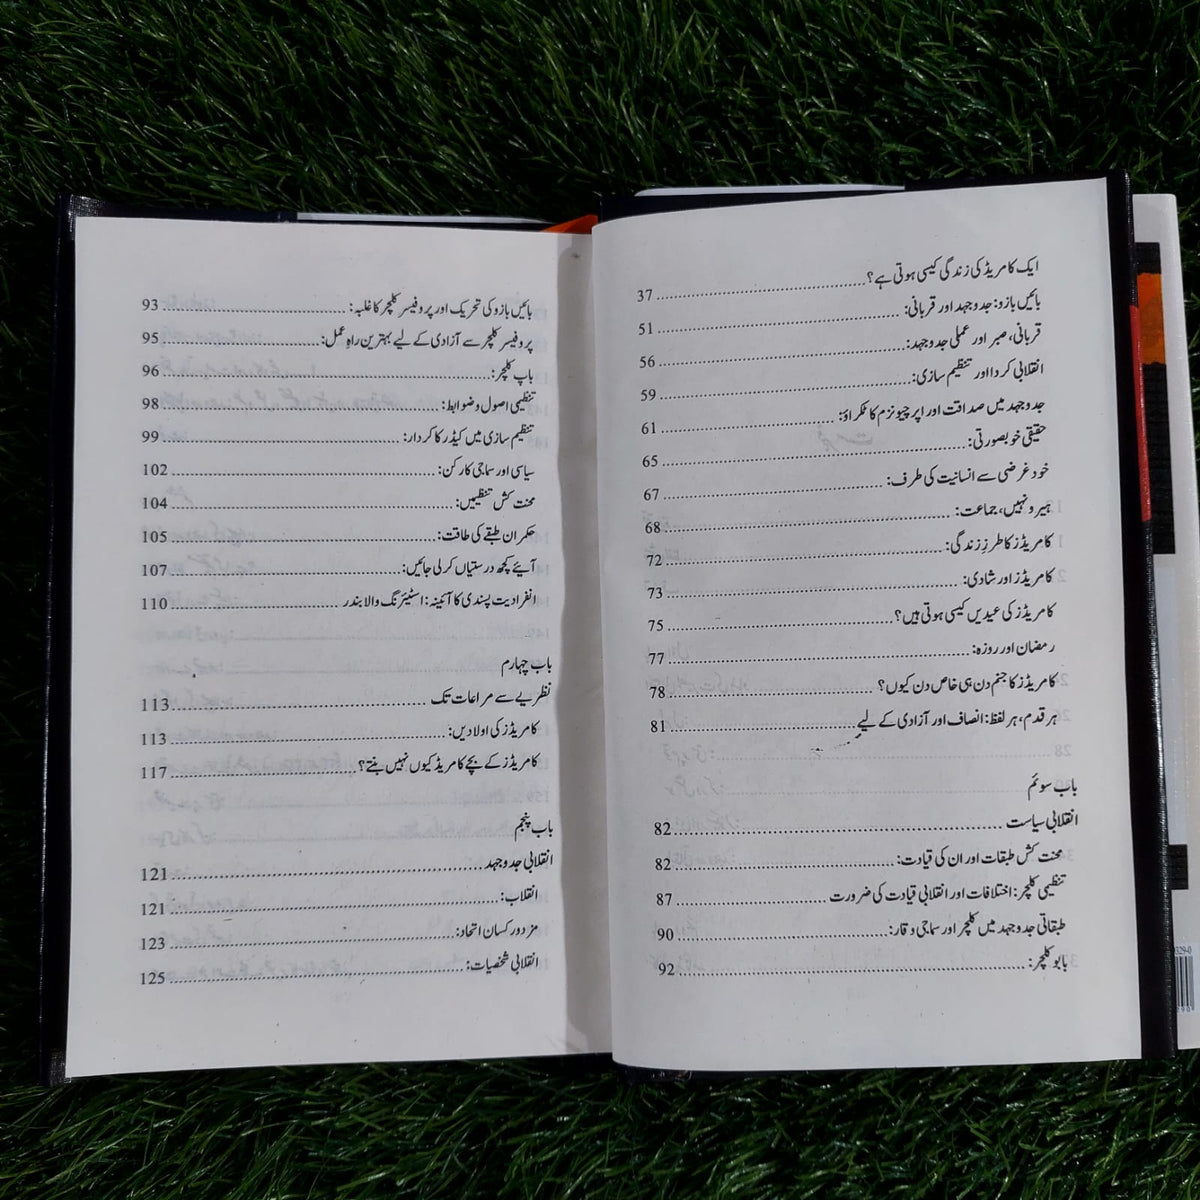 ایک کامریڈ کی زندگی کیسی ہوتی ہے؟ 37
بائیں بازو: جدوجہد اور قربانی: 51
قربانی، صبر اور عملی جدوجہد: 56
انقلابی کردا اور تنظیم سازی: 59
جدوجہد میں صداقت اور اپرچیونزم کا ٹکراؤ: 61
حقیقی خوبصورتی: 65
خود غرضی سے انسانیت کی طرف: 67
ہیرو نہیں، جماعت: 68
کامریڈز کا طرزِ زندگی: 72
کامریڈز اور شادی: 73
کامریڈز کی عیدیں کیسی ہوتی ہیں؟ 75
رمضان اور روزہ: 77
کامریڈز کا جنم دن ہی خاص دن کیوں؟ 78
ہر قدم، ہر لفظ: انصاف اور آزادی کے لیے 81
باب سوئم
انقلابی سیاست 82
محنت کش طبقات اور ان کی قیادت: 82
تنظیمی کلچر: اختلافات اور انقلابی قیادت کی ضرورت 87
طبقاتی جدوجہد میں کلچر اور سماجی وقار: 90
بابو کلچر: 92
بائیں بازو کی تحریک اور پروفیسر کلچر کا غلبہ: 93
پروفیسر کلچر سے آزادی کے لیے بہترین راہِ عمل: 95
باپ کلچر: 96
تنظیمی اصول و ضوابط: 98
تنظیم سازی میں کیڈر کا کردار: 99
سیاسی اور سماجی کارکن: 102
محنت کش تنظیمیں: 104
حکمران طبقے کی طاقت: 105
آیئے کچھ درستیاں کر لی جائیں: 107
انفرادیت پسندی کا آئینہ: اسٹیئرنگ والا بندر 110
باب چہارم
نظریے سے مراعات تک 113
کامریڈز کی اولادیں: 113
کامریڈز کے بچے کامریڈ کیوں نہیں بنتے؟ 117
باب پنجم
انقلابی جدوجہد 121
انقلاب: 121
مزدور کسان اتحاد: 123
انقلابی شخصیات: 125